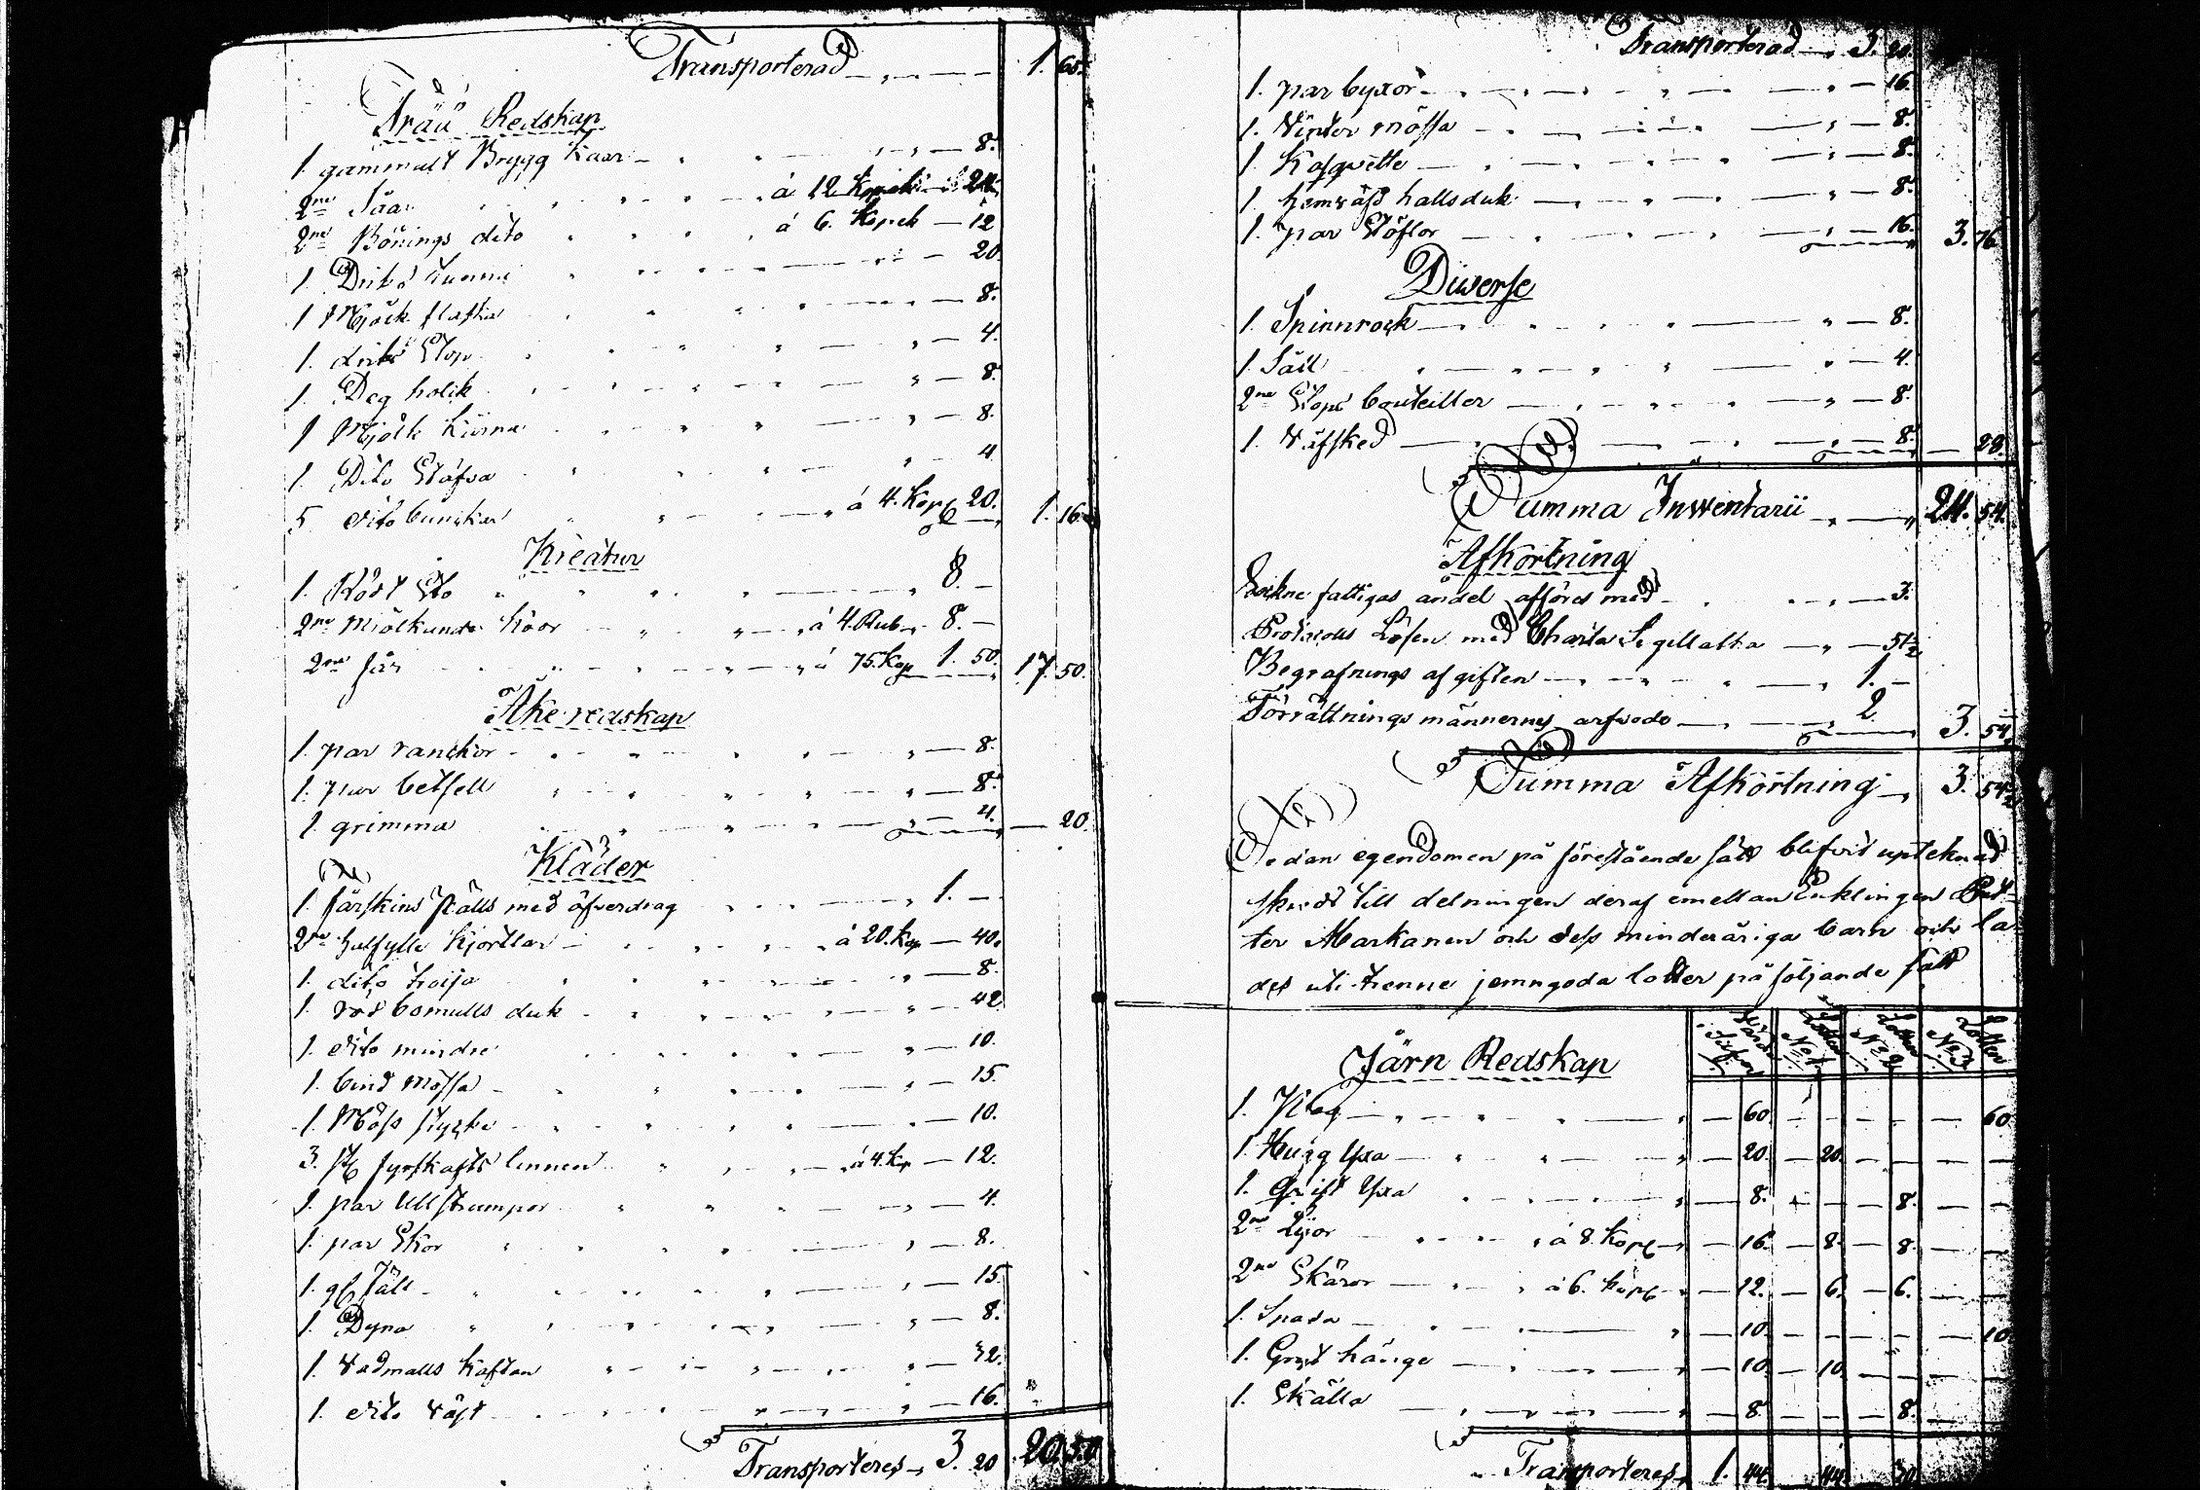 Transporterad 1. 65.
Trää Redskap
1. gammalt Brygg Kaar 8.
2ne Såar á 12 Kopek 24
2ne Bönings dito á 6. Kopek 12
1. Dricks tunna 20.
1 Mjölk flaska 8.
1. dricks Stop 4.
1. Deg holik 8.
1 Mjölk kiärna 8.
1. Dito Stäfva 4
5 dito bunckar á 4. Kop 20. 1. 16.
Kreatur
1. Rödt Sto 8. –
2ne Miölkande Koor á 4. Rub 8. –
2ne får á 75. Kop 1. 50. 17. 50.
Åke redskap
1. par ranckor 8.
1. par betsell 8.
1. grimma 4. 20.
Kläder
1. fårskins Pälls med öfverdrag 1. –
2ne halfylle Kjortlar á 20. Kop 40.
1. dito troija 8.
1. röd bomulls duk 42
1. dito mindre 10.
1. bind Mössa 15.
1. Möss stycke 10.
3. st fyrskafts linnen á 4. Kop 12.
1. par Ull strumpor 4.
1. par Skor 8.
1. gl fäll 15.
1. Dyna 8.
1. Vadmalls Kaftan 32.
1. dito Väst 16.
Transporteres 3. 20 20. 50
Transporterad 3. 20.
1. par byxor 16.
1. Vinter mössa 8.
1. Kasquette 8.
1. hemväfd hallsduk 8.
1. par Stöflor 16. 3. 76.
Diverse
1. Spinnrock 8.
1. Såll 4.
2ne Stops bouteiller 8.
1. Väfsked 8. 28.
Summa Inwentarii 24. 54.
Afkortning
Sockne fattigas andel afföres med 3.
Protocolls Lösen med Charta Sigillatta 51½
Begrafnings afgiften 1. –
Förrättnings männernes arfvode 2 3. 54½
Summa Afkortning 3. 54½
Sedan egendomen på förestående sätt blifvit uptecknad
skreds till delningen deraf emellan Enklingen Pet-
ter Markanen och dess minderåriga barn och la-
des uti trenne jemngoda lotter på följande sätt
Järn Redskap
Lotten No 1. Lotten No 2. Lotten No 3
1. Plog 60. 60
1. Hugg Yxa 20. 20.
1. Qvist Yxa 8. 8.
2ne Lijor á 8 Kop 16. 8. 8.
2ne Skäror á 6. Kop 12. 6. 6.
1. Spada 10. 10
1. Gryt hänge 10. 10.
1. Skälla 8. 8.
Transporteres 1. 44. 44.